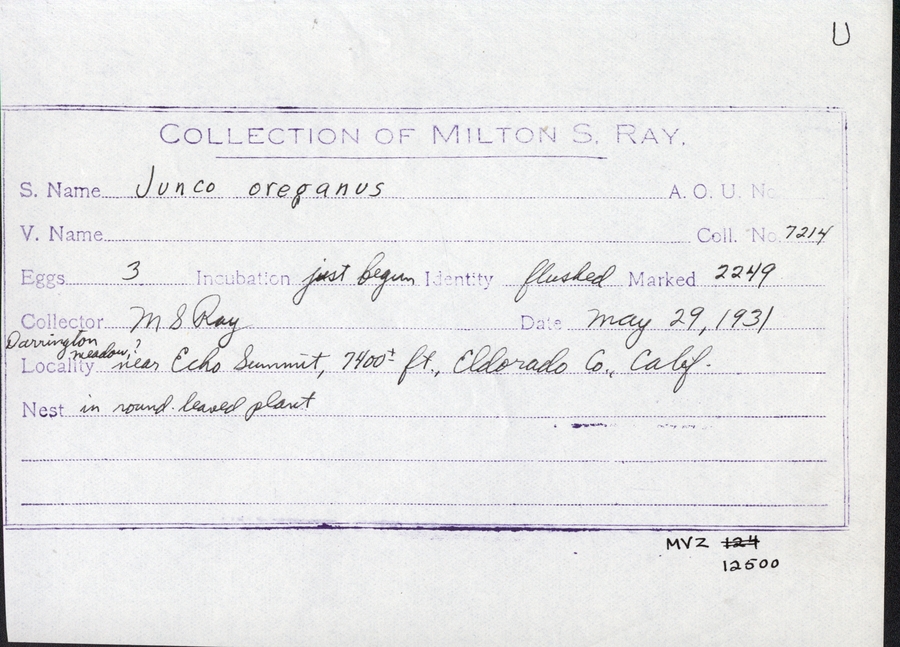 U
COLLECTION OF MILTON S. RAY.
S. Name Junco oreganus A. O. U. No.
V. Name Coll. No. 7214
Eggs 3 Incubation just begun Identity flushed Marked 2249
Collector M S Ray Date May 29, 1931
Darrington
meadow, ?
Locality near Echo Summit, 7400± ft., Eldorado Co., Calif.
Nest in round-leaved plant
MVZ 124
12500